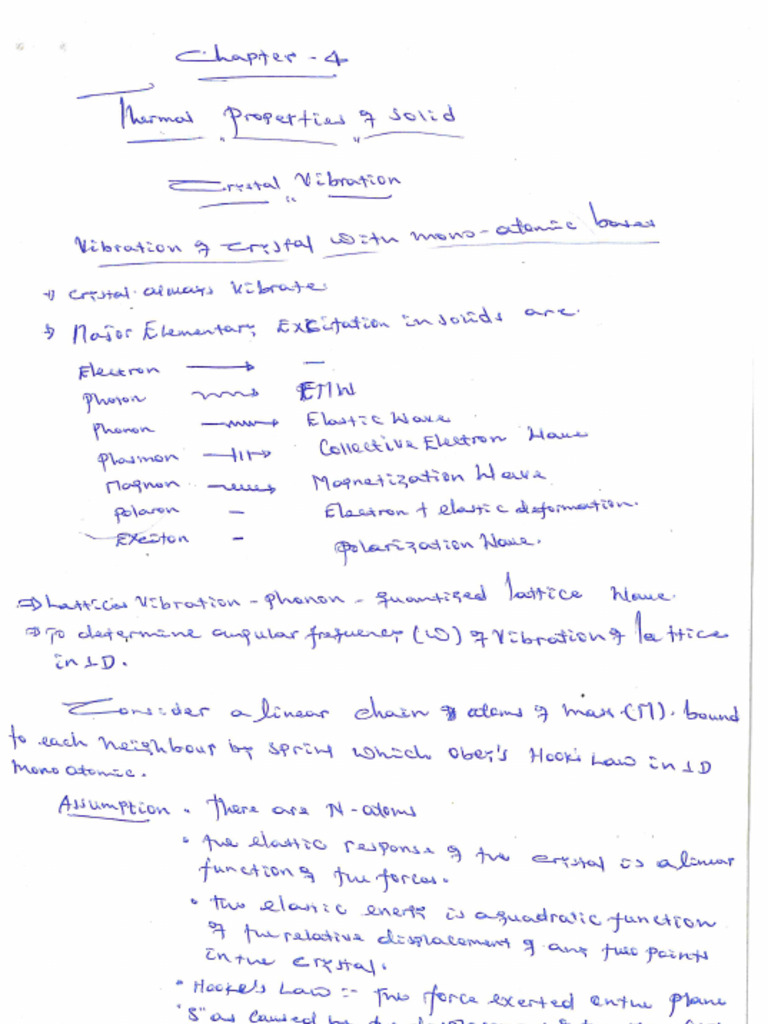 Chapter - 4
Thermal Properties of solid
Crystal Vibration
Vibration of crystal with mono-atomic bases
⇒ crystal always vibrate
⇒ Major Elementary Excitation in solids are.
Electron → —
Photon → EMW
Phonon → Elastic Wave
Plasmon → Collective Electron Wave
Magnon → Magnetization Wave
Polaron - Electron + elastic deformation.
Exciton - Polarization Wave.
⇒ Lattices Vibration - Phonon - quantized lattice wave.
⇒ To determine angular frequency (ω) of vibration of lattice
in 1D.
Consider a linear chain of atoms of mass (M). bound
to each neighbour by sprint which obey's Hook's Law in 1D
mono atomic.
Assumption • There are N-atoms
• the elastic response of the crystal is a linear
function of the forces.
• The elastic energy is a quadratic function
of the relative displacement of any two points
in the crystal.
• Hooke's Law :- The force exerted on the plane
"S" as caused by the displacement of